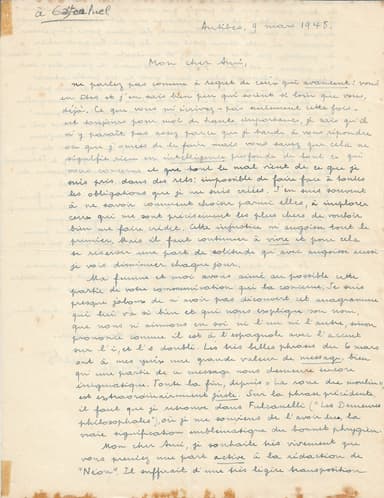 à Gaston Puel
Antibes, 9 mars 1948.
Mon cher Ami,
ne parlez pas comme à regret de ceux qui avancent : vous
en êtes et j'en sais bien peu qui soient si loin que vous,
déjà. Ce que vous m'écrivez - pas seulement cette fois -
est toujours pour moi de haute importance, je sais qu'il
n'y paraît pas assez parce que je tarde à vous répondre
ou que j'omets de le faire mais vous savez que cela ne
signifie rien en intelligence profonde de tout ce qui
vous concerne et que tout le mal vient de ce que je
suis pris dans des rets: impossible de faire face à toutes
les obligations que je me suis créées. J'en suis souvent
à ne savoir comment choisir parmi elles, à implorer
ceux qui me sont précisément les plus chers de vouloir
bien me faire crédit. Cette injustice m'angoisse tout le
premier. Mais il faut continuer à vivre et pour cela
se réserver une part de solitude qu'avec angoisse aussi
je vois diminuer chaque jour.
Ma femme et moi avons aimé au possible cette
partie de votre communication qui la concerne. Je suis
presque jaloux de n'avoir pas découvert cet anagramme
qui luit là si bien et qui nous explique son nom,
que nous n'aimons en soi ni l'un ni l'autre, sinon
prononcé comme il est à l'espagnole avec l'accent
sur l'i, et l'a doublé. Les très belles phrases du 6 mars
ont à mes yeux une grande valeur de message, bien
qu'une partie de ce message nous demeure encore
énigmatique. Toute la fin, depuis "La roue des moulins",
est extraordinairement juste. Sur la phrase précédente,
il faut que je retrouve dans Fulcanelli ("Les Demeures
philosophales", où je me souviens de l'avoir lue, la
vraie signification emblématique du bonnet phrygien.
Mon cher Ami, je souhaite très vivement que
vous preniez une part active à la rédaction de
"Néon". Il suffirait d'une très légère transposition